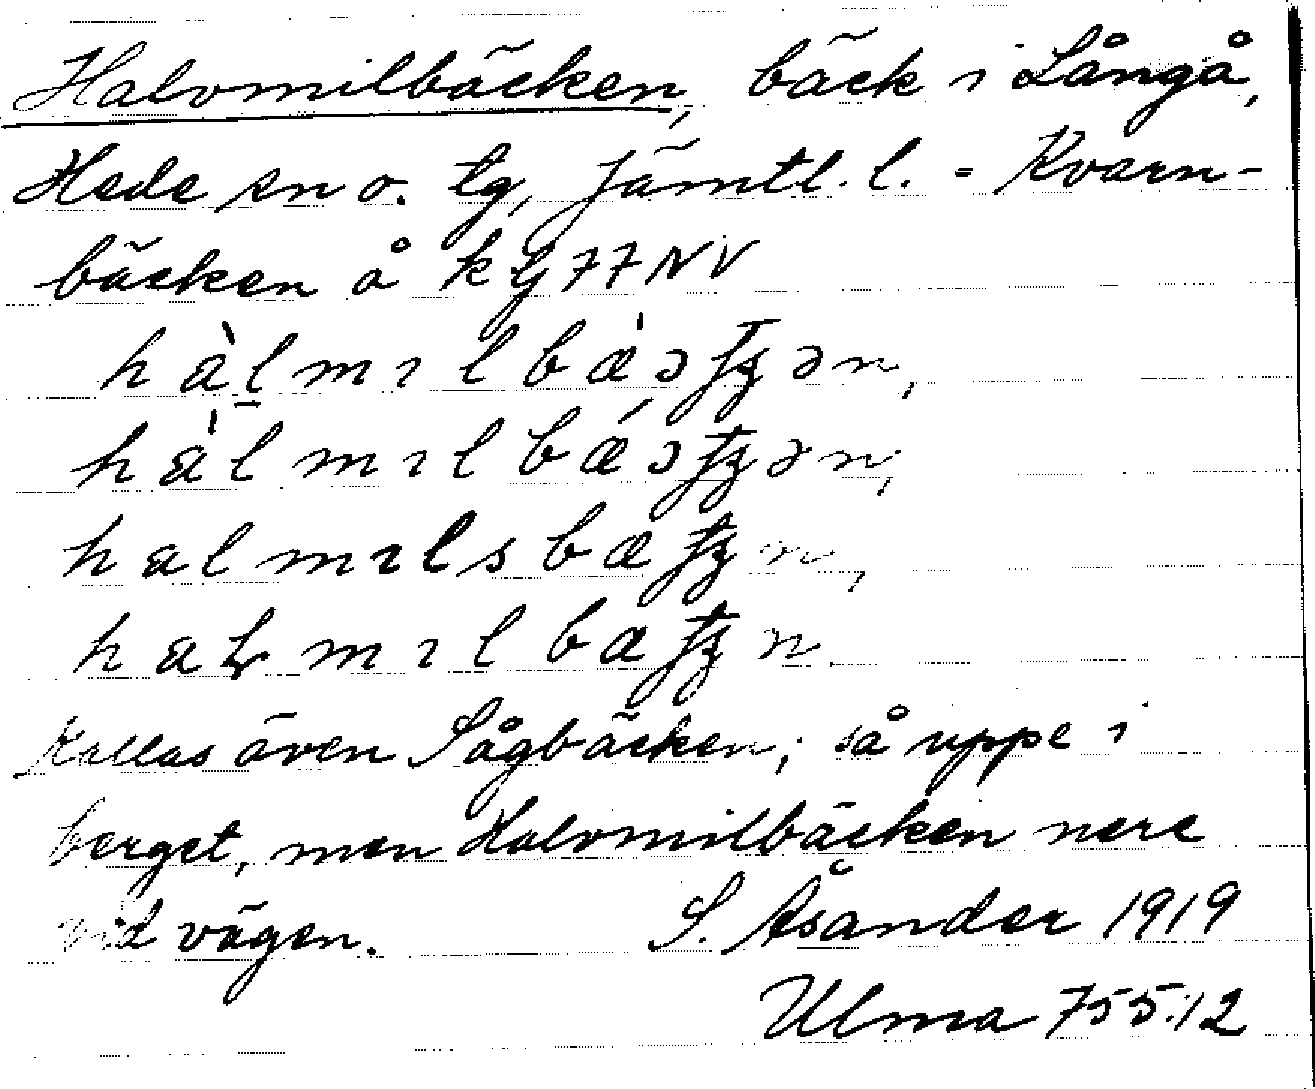 Halvmilbäcken, bäck i Långå,
Hede sn o. tg, Jämtl. l. = Kvarn-
bäcken å k bl 77 NV
hàlmılbæ̀ɔʈȥən,
hàlmılbǽɔʈȥən,
halmılsbæʈȥn,
haⱡmılbæʈȥn
Kallas även Sågbäcken; så uppe i
berget, men Halvmilbäcken nere
vid vägen. S. Åsander 1919
Ulma 755:12